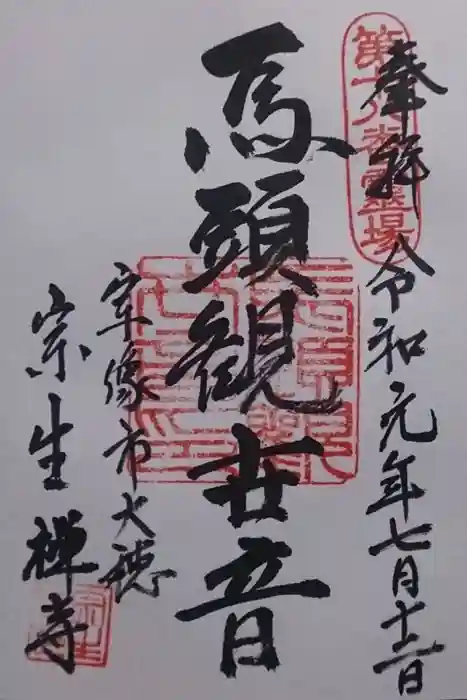 奉拝
令和元年七月十二日
第十八番靈場
馬頭観世音
宗像市大穂
宗生禅寺